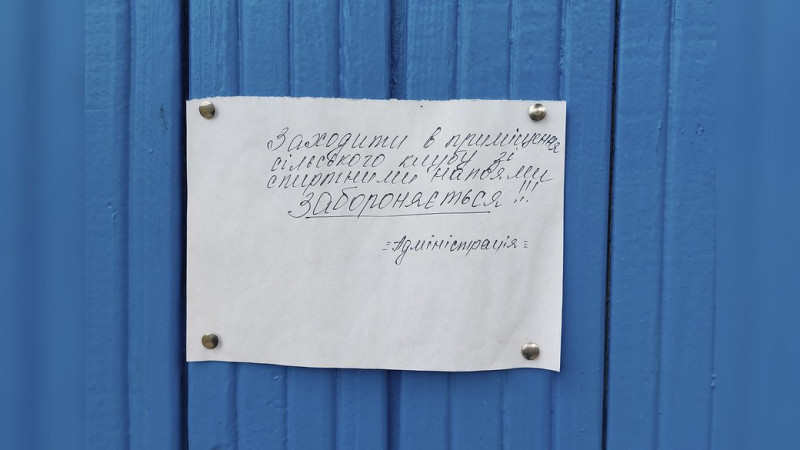 Заходити в приміщення
сільського клубу зі
спиртними напоями
Забороняється!!!
=Адміністрація=